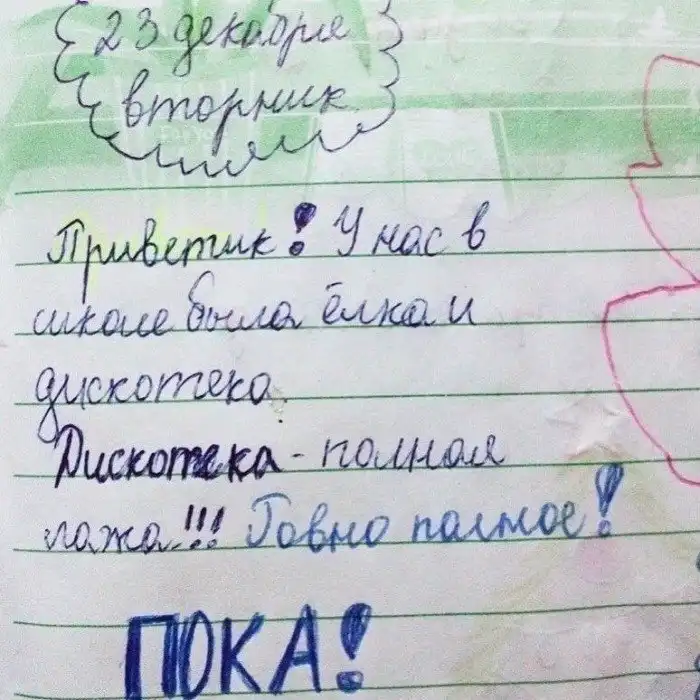 23 декабря
вторник
Приветик! У нас в
школе была ёлка и
дискотека.
Дискотека - полная
лажа!!! Говно полное!
ПОКА!